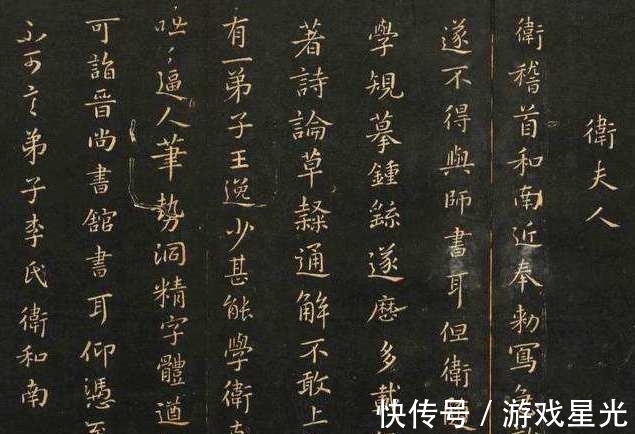 衛夫人
衛稽首和南近奉勅寫
遂不得與師書耳但衛
學規摹鍾繇遂歷多載
著詩論草隸通解不敢上
有一弟子王逸少甚能學衛
咄〻逼人筆勢洞精字體遒
可詣晉尚書館書耳仰憑至
不可言弟子李氏衛和南
快传号 / 游戏星光